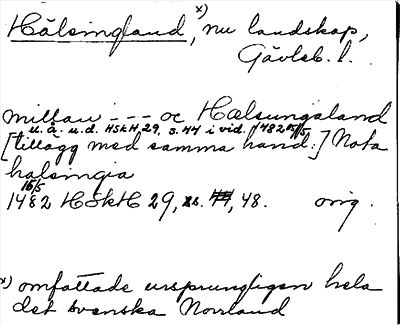 Hälsingland, x) nu landskap,
Gävleb. l.
mittan --- oc Hælsungaland
u.å. u.d. HSkH 29, s. 44 i vid. 1482 15/5
[tillägg med samma hand:] Nota
halsingia
15/5
1482 HSkH 29, s. 44, 48. orig.
x) omfattade ursprungligen hela
det svenska Norrland